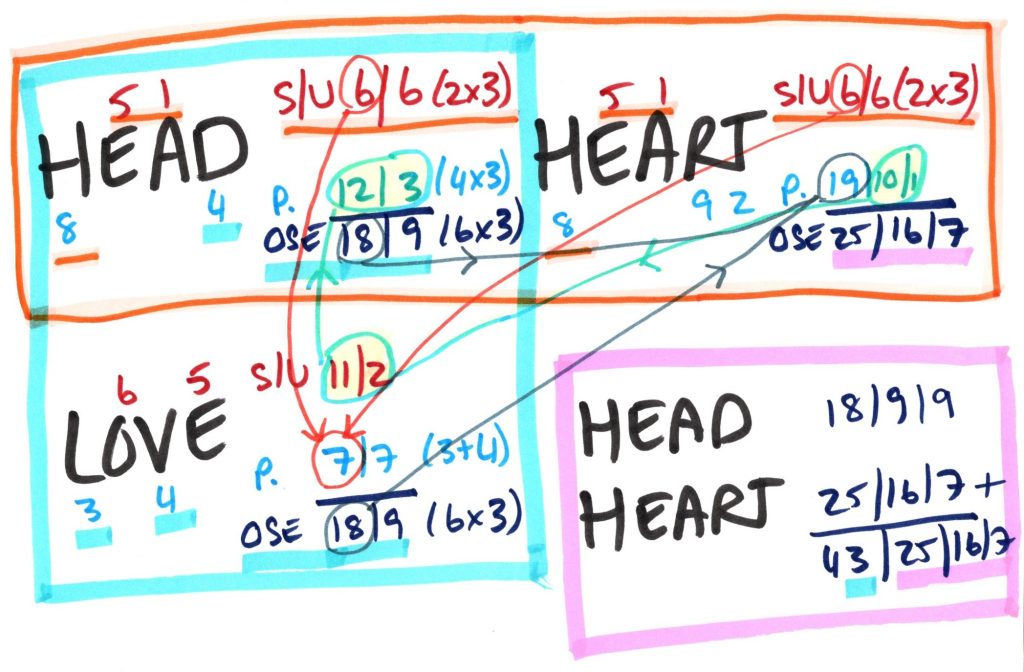 5 1 S/U 6/6 (2x3)
HEAD
8 4 P. 12/3 (4x3)
OSE 18/9 (6x3)
5 1 S/U 6/6 (2x3)
HEART
8 9 2 P. 19/10/1
OSE 25/16/7
6 5 S/U 11/2
LOVE
3 4 P. 7/7 (3+4)
OSE 18/9 (6x3)
HEAD 18/9/9
HEART 25/16/7 +
43/25/16/7